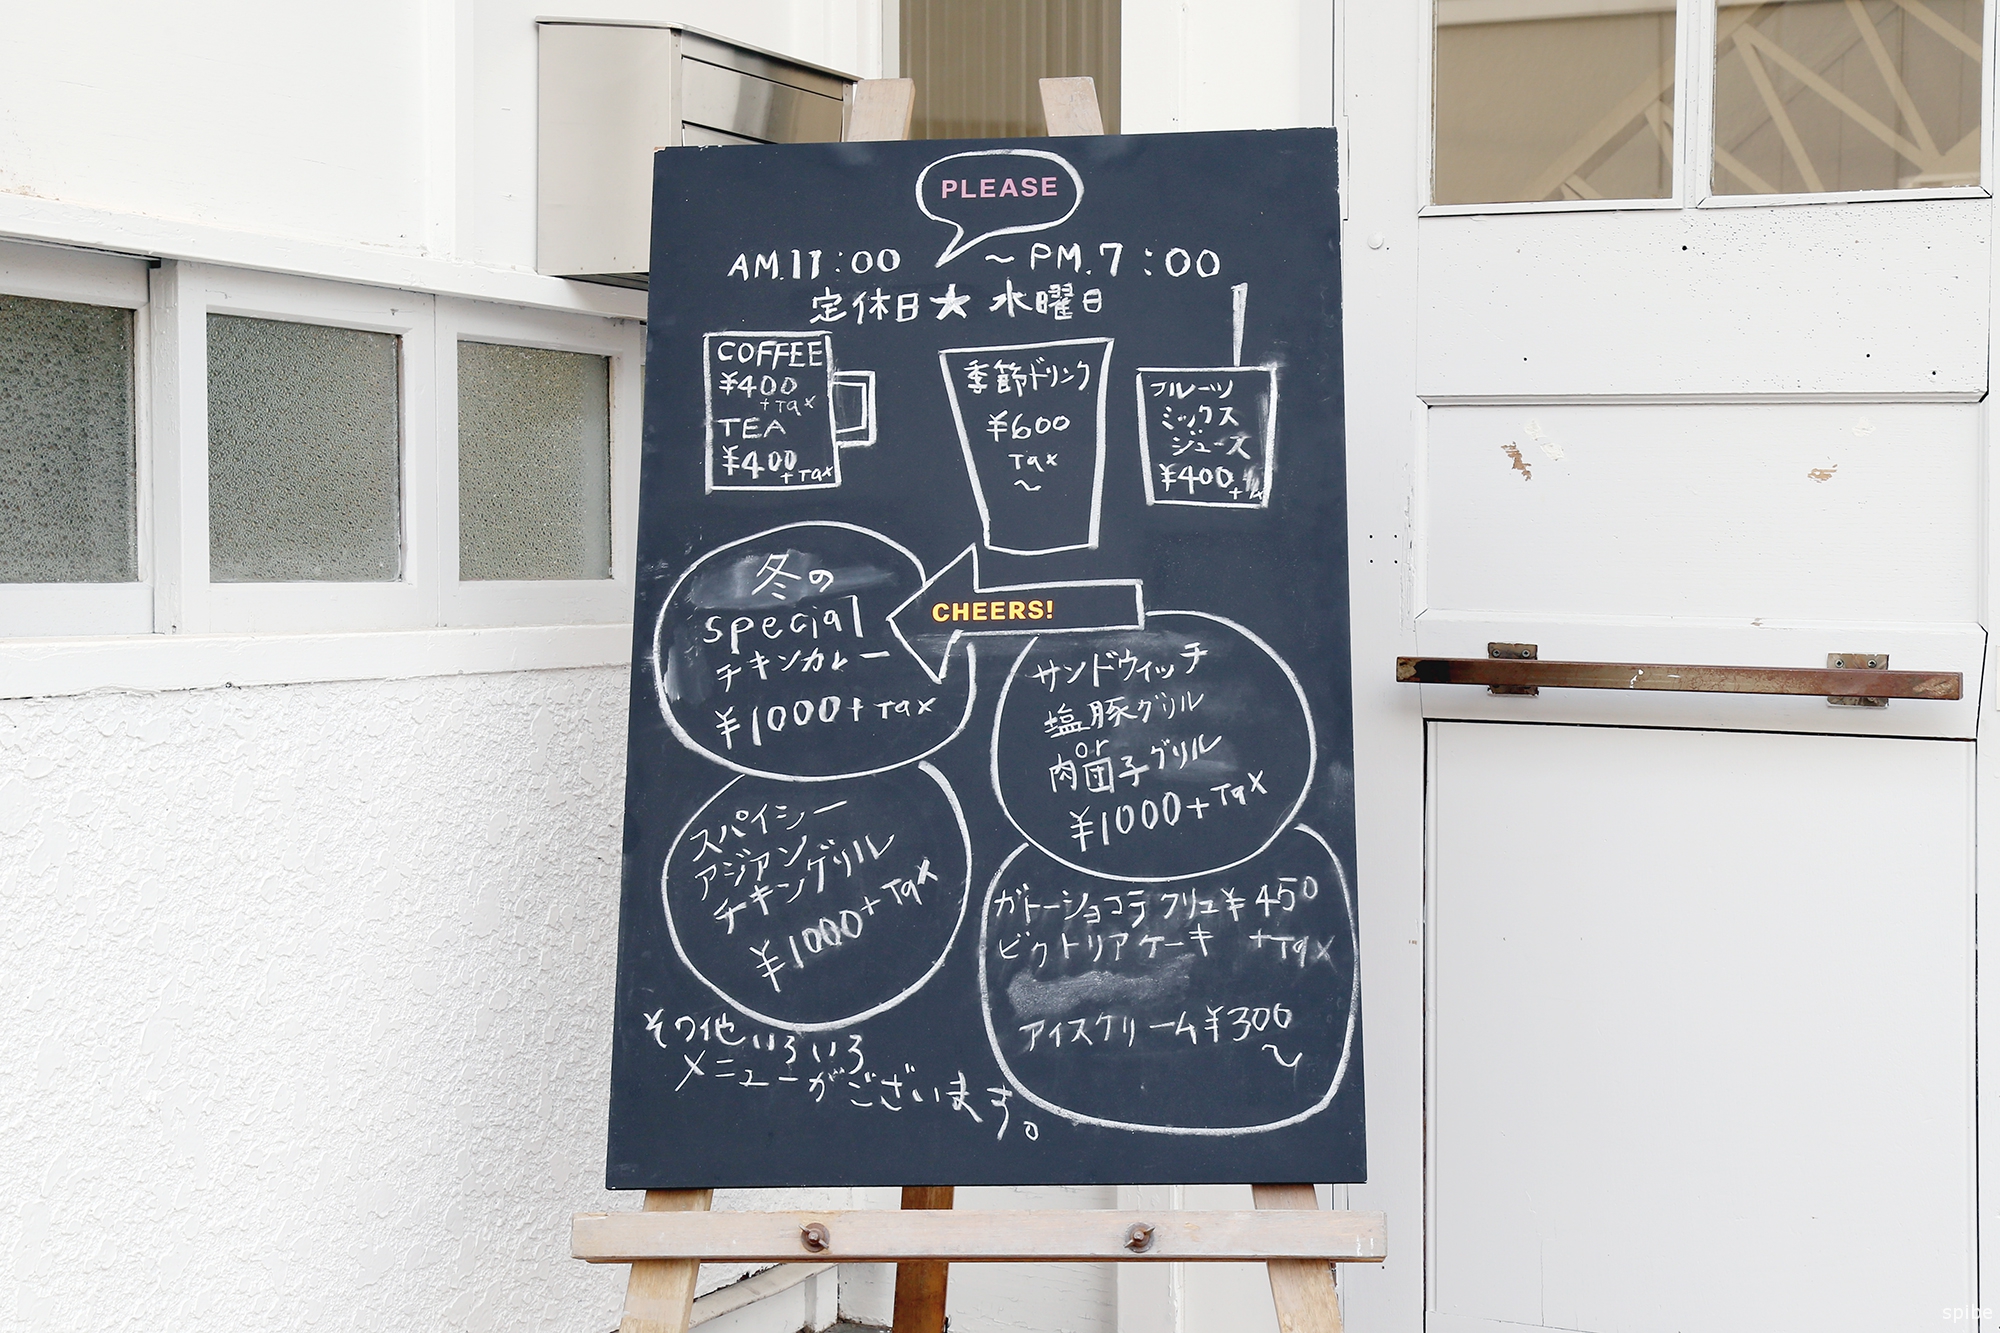 PLEASE
AM.11:00 ～PM.7:00
定休日★水曜日
COFFEE
¥400
+Tax
TEA
¥400+Tax
季節ドリンク
¥600
Tax
～
フルーツ
ミックス
ジュース
¥400+
冬の
special
チキンカレー
¥1000+Tax
CHEERS!
サンドウィッチ
塩豚グリル
or
肉団子グリル
¥1000+Tax
スパイシー
アジアン
チキングリル
¥1000+Tax
ガトーショコラ クリュ¥450
ビクトリアケーキ +Tax
アイスクリーム¥300
～
その他いろいろ
メニューがございます。
spibe